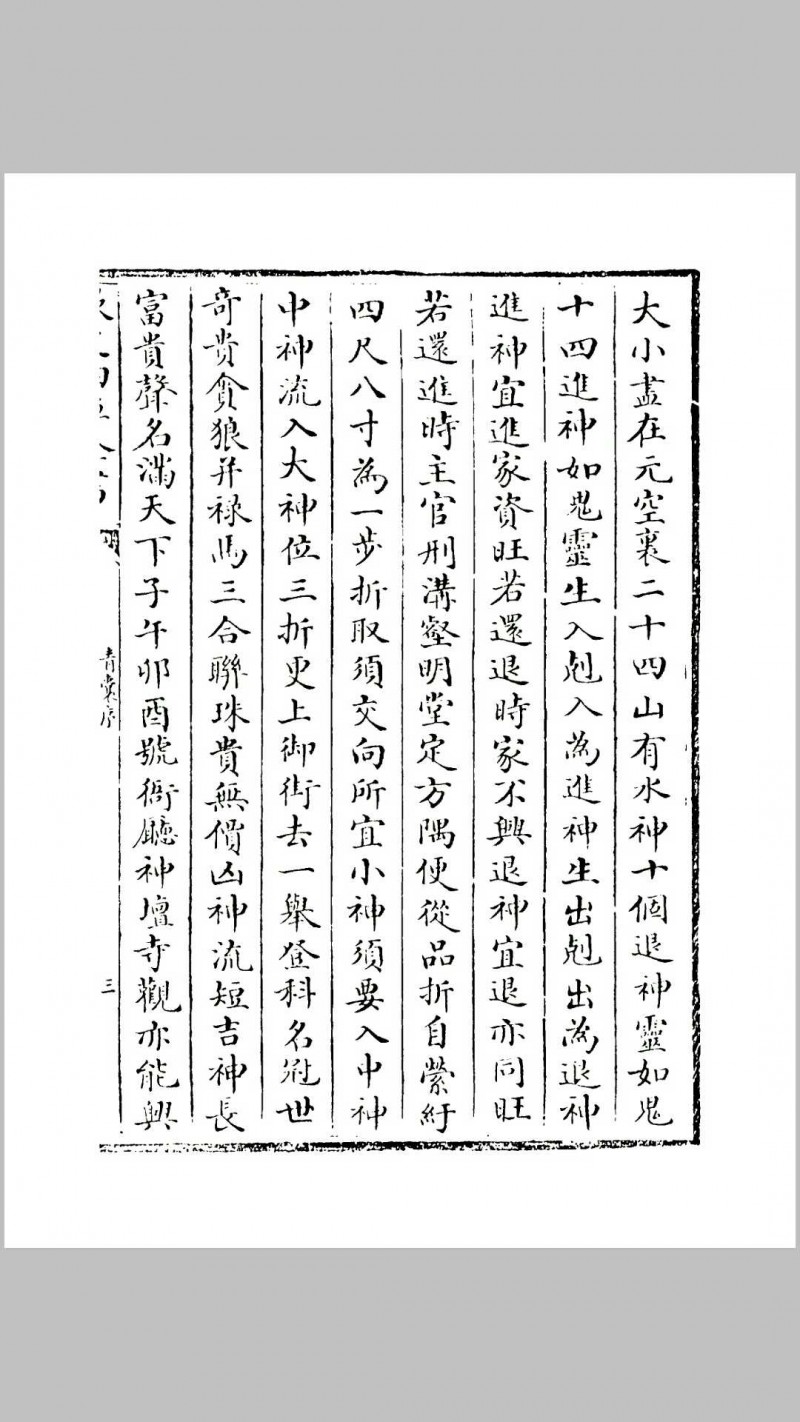 大小盡在元空裏二十四山有水神十個退神靈如鬼
十四進神如鬼靈生入剋入為進神生出剋出為退神
進神宜進家資旺若還退時家不興退神宜退亦同旺
若還進時主官刑溝壑明堂定方隅便從品折自縈紆
四尺八寸為一步折取須交向所宜小神須要入中神
中神流入大神位三折更上御街去一舉登科名冠世
奇貴貪狼并祿馬三合聯珠貴無價凶神流短吉神長
富貴聲名滿天下子午卯酉號衙廳神壇寺觀亦能興
青囊序
三